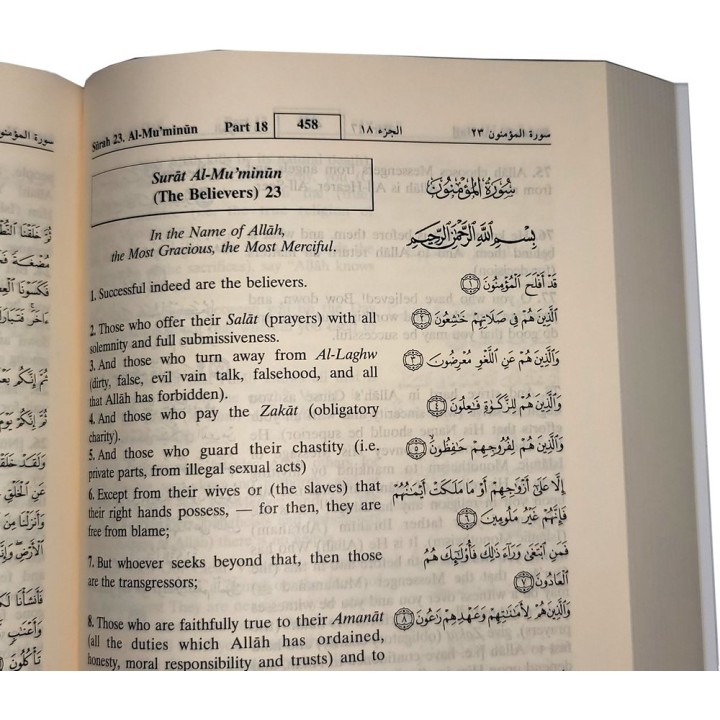 Sūrah 23. Al-Mu'minūn Part 18 458 الجزء ١٨ سورة المؤمنون ٢٣
Surāt Al-Mu'minūn
(The Believers) 23
In the Name of Allāh,
the Most Gracious, the Most Merciful.
1. Successful indeed are the believers.
2. Those who offer their Salāt (prayers) with all
solemnity and full submissiveness.
3. And those who turn away from Al-Laghw
(dirty, false, evil vain talk, falsehood, and all
that Allāh has forbidden).
4. And those who pay the Zakāt (obligatory
charity).
5. And those who guard their chastity (i.e.
private parts, from illegal sexual acts)
6. Except from their wives or (the slaves) that
their right hands possess, — for then, they are
free from blame;
7. But whoever seeks beyond that, then those
are the transgressors;
8. Those who are faithfully true to their Amanāt
(all the duties which Allāh has ordained,
honesty, moral responsibility and trusts) and to
سُورَةُ المُؤْمِنُونَ
بِسْمِ اللَّهِ الرَّحْمَٰنِ الرَّحِيمِ
قَدْ أَفْلَحَ ٱلْمُؤْمِنُونَ ١
ٱلَّذِينَ هُمْ فِى صَلَاتِهِمْ خَٰشِعُونَ ٢
وَٱلَّذِينَ هُمْ عَنِ ٱللَّغْوِ مُعْرِضُونَ ٣
وَٱلَّذِينَ هُمْ لِلزَّكَوٰةِ فَٰعِلُونَ ٤
وَٱلَّذِينَ هُمْ لِفُرُوجِهِمْ حَٰفِظُونَ ٥
إِلَّا عَلَىٰٓ أَزْوَٰجِهِمْ أَوْ مَا مَلَكَتْ أَيْمَٰنُهُمْ
فَإِنَّهُمْ غَيْرُ مَلُومِينَ ٦
فَمَنِ ٱبْتَغَىٰ وَرَآءَ ذَٰلِكَ فَأُو۟لَٰٓئِكَ هُمُ
ٱلْعَادُونَ ٧
وَٱلَّذِينَ هُمْ لِأَمَٰنَٰتِهِمْ وَعَهْدِهِمْ رَٰعُونَ ٨